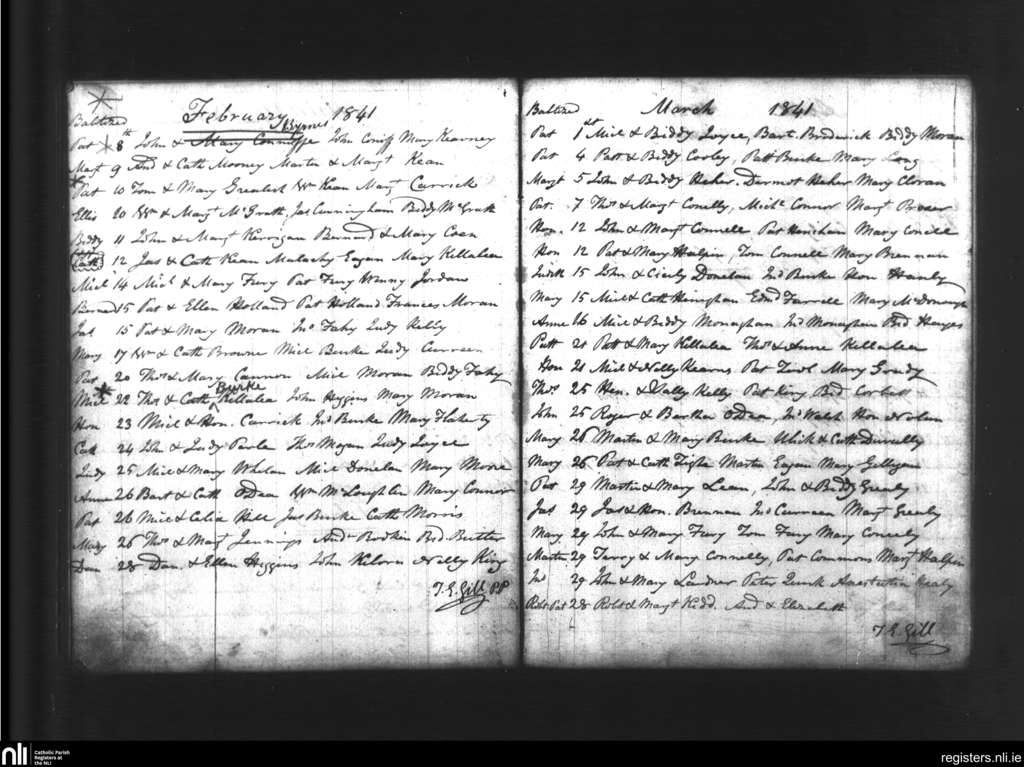 February 1841
Baltized Byrnes
Pat 8th John & Mary Conniffe John Coniff Mary Kearney
Margt 9 And & Cath Mooney Martin & Margt Kean
Pat 10 Tom & Mary Greatest Wm Kean Margt Carrick
Ellis 10 Wm & Margt McGrath, Jas Cunningham Biddy McGrath
Biddy 11 John & Margt Kerrigan Bernard & Mary Coen
Cath 12 Jas & Cath Kean Malachy Eagan Mary Killalea
Micl 14 Micl & Mary Fury Pat Fury Winny Jordan
Bernard 15 Pat & Ellen Holland Pat Holland Frances Moran
Jas 15 Pat & Mary Moran Jno Fahy Judy Kelly
Mary 17 Wm & Cath Browne Micl Burke Judy Curreen
Pat 20 Thos & Mary Cannon Micl Moran Biddy Fahy
Burke
Micl 22 Thos & Cath Killalea John Higgins Mary Moran
Hon 23 Micl & Hon. Carrick Jno Burke Mary Flaherty
Cath 24 John & Judy Thos Judy Joyce
Judy 25 Micl & Mary Whelan Micl Donelan Mary Moore
Anne 26 Bart & Cath ODea Wm McLoughlin Mary Connor
Pat 26 Micl & Celia Hill Jas Burke Cath Morris
Mary 26 Thos & Margt Jennings Andw Bodkin Bid
Dan 28 Dan. & Ellen Higgins John Nelly King
T.E. Gill PP
March 1841
Baltized
Pat 1st Micl & Biddy Joyce, Bart. Broderick Biddy Moran
Pat 4 Patt & Biddy Cooley, Patt Burke Mary Long
Margt 5 John & Biddy Heher. Dermot Heher Mary Cloran
Pat. 7 Thos & Margt Conelly, Michl Connor Margt
Hon. 12 John & Margt Connell Pat Mary Conell
Hon 12 Pat & Mary Halpin, Tom Connell Mary Brennan
Judith 15 John & Cicely Donelan Jno Burke Hon Hanly
Mary 15 Micl & Cath Edmd Farrell Mary McDonough
Anne 16 Micl & Biddy Monaghan Jno Monaghan Bid
Patt 21 Patt & Mary Killalea Thos & Anne Killalea
Hon 21 Micl & Nelly Kearns Pat Mary Grady
Thos. 25 Hen. & Sally Kelly Pat King Bid Corbett
John 25 Roger & Barthea ODea, Jno Walsh Hon Nolan
Mary 26 Martin & Mary Burke Ulick & Cath
Mary 26 Pat & Cath Tighe Martin Eagan Mary Gilligan
Pat 29 Martin & Mary Lean, John & Biddy Grealy
Jas 29 Jas & Hon. Brennan Jno Curreen Margt Grealy
Mary 29 John & Mary Fury Tom Fury Mary Conelly
Martin 29 Terry & Mary Connelly, Pat Commons Margt Halpin
Jno 29 John & Mary Peter Quirk Anastatia Grealy
Robt Pat 28 Robt & Margt Kidd. And & Elizabeth
T.E. Gill
nli
Catholic Parish
Registers at
the NLI
registers.nli.ie